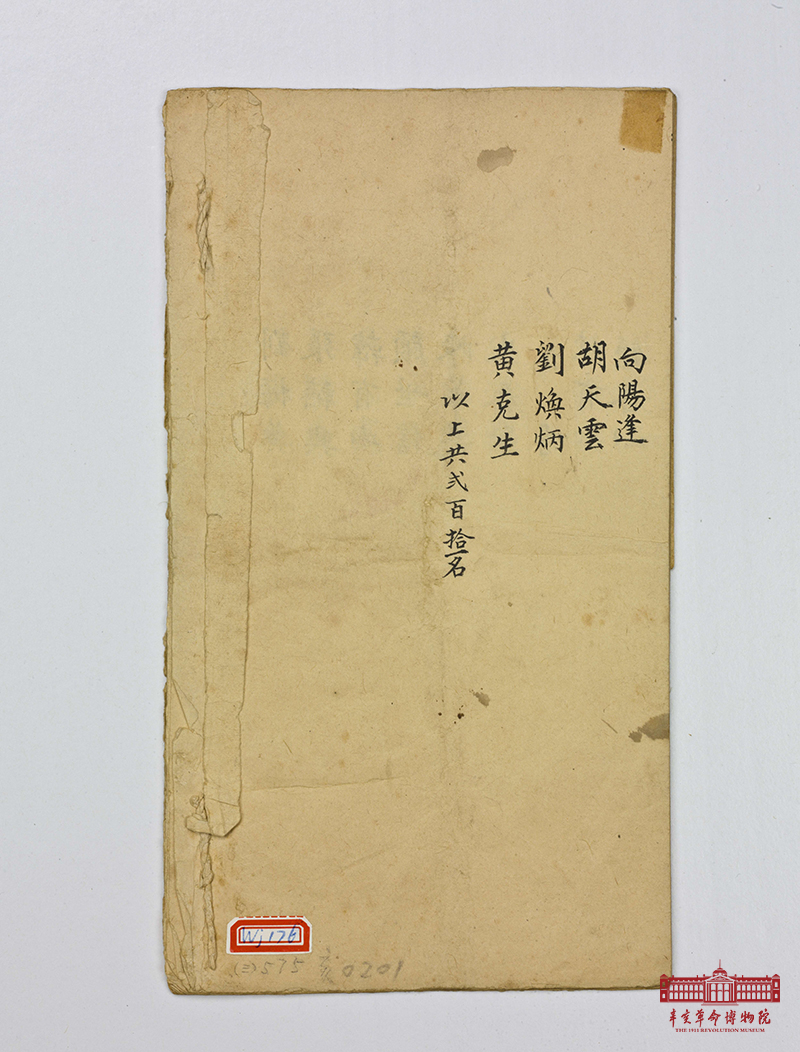 向陽逢
胡天雲
劉煥炳
黄克生
以上共弍百拾一名
Wj176
(三)575 亥0201
辛亥革命博物院
THE 1911 REVOLUTION MUSEUM